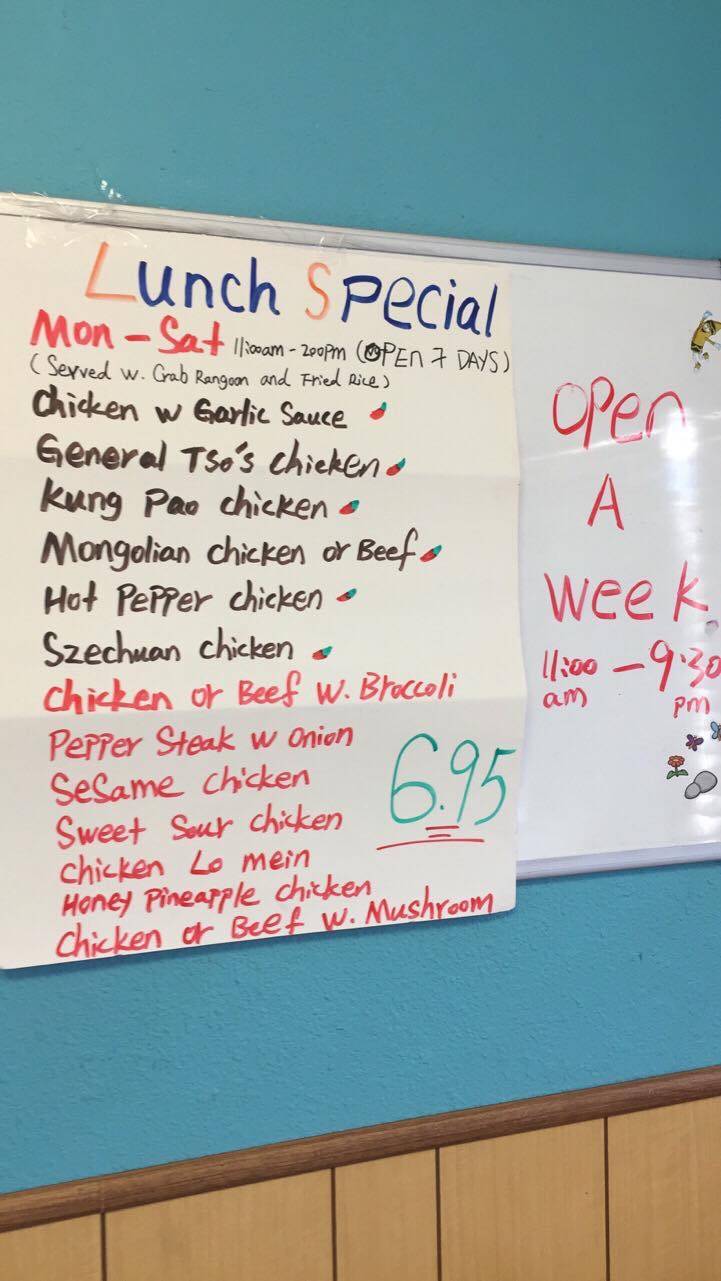 Lunch Special
Mon - Sat 11:00am - 2:00pm (OPEN 7 DAYS)
(Served w. Crab Rangoon and Fried Rice)
Chicken w Garlic Sauce
General Tso's chicken
Kung Pao chicken
Mongolian chicken or Beef
Hot Pepper chicken
Szechuan chicken
Chicken or Beef w. Broccoli
Pepper Steak w Onion
Sesame chicken
Sweet Sour chicken
Chicken Lo mein
Honey Pineapple chicken
Chicken or Beef w. Mushroom
6.95
Open
A
Week
11:00 - 9:30
am pm